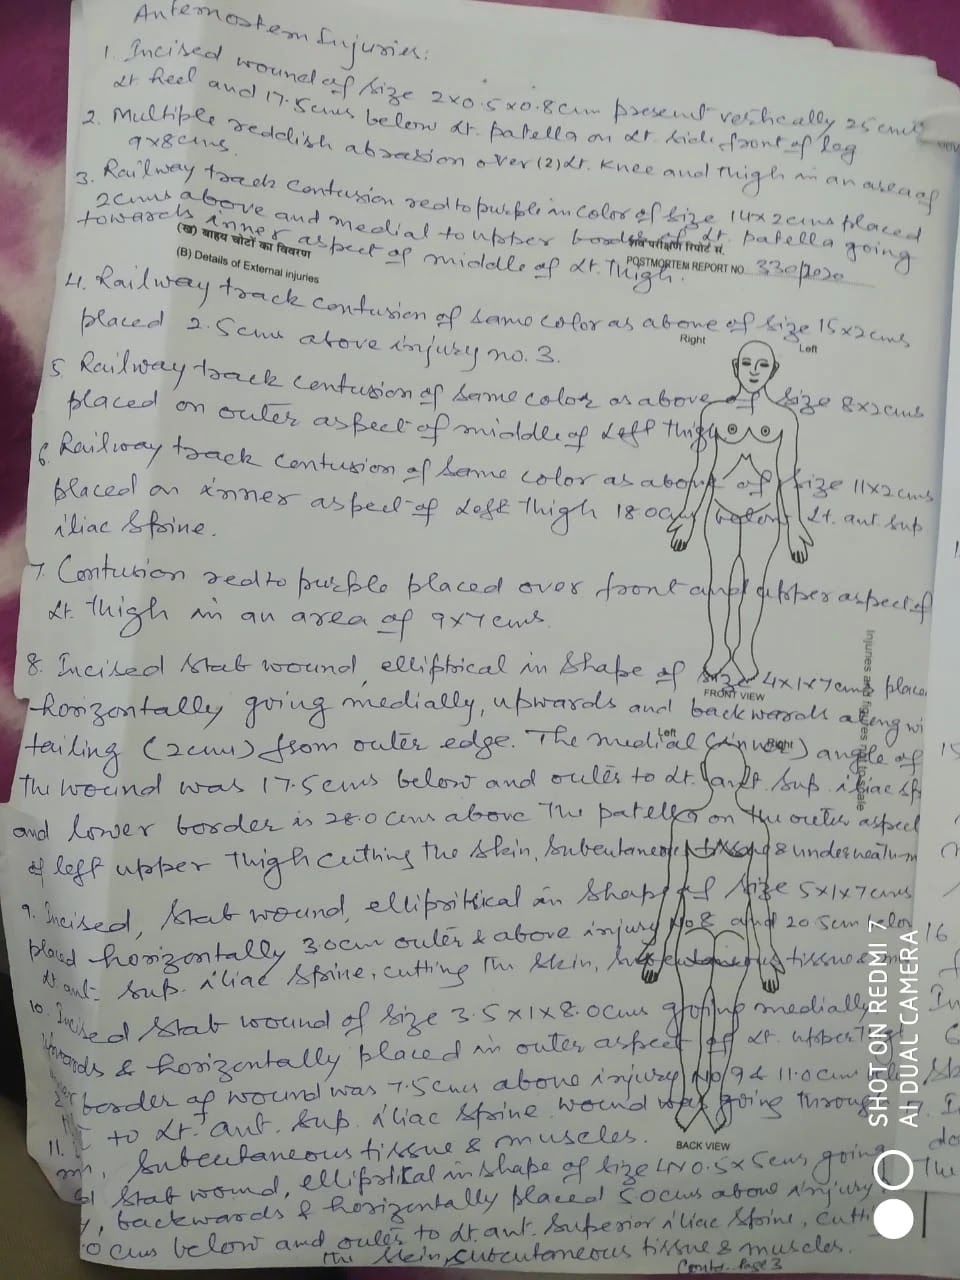 Antemortem Injuries:
1. Incised wound of size 2x0.5x0.8cm present vertically 25cms
Lt. heel and 17.5cms below Lt. patella on Lt. side front of leg
2. Multiple reddish abrasion over (2) Lt. knee and thigh in an area of
9x8cms.
3. Railway track contusion red to purple in color of size 14x2cms placed
2cms above and medial to upper border of Lt. patella going
towards inner aspect of middle of Lt. thigh.
(ख) बाह्य चोटों का विवरण
(B) Details of External injuries
शव परीक्षण रिपोर्ट सं.
POSTMORTEM REPORT NO. 330/2020
4. Railway track contusion of same color as above of size 15x2cms
placed 2.5cms above injury no. 3.
Right Left
5. Railway track contusion of same color as above of size 8x2cms
placed on outer aspect of middle of Left thigh
6. Railway track contusion of same color as above of size 11x2cms
placed on inner aspect of Left thigh 18.0cm below Lt. ant. sup
iliac spine.
7. Contusion red to purple placed over front and upper aspect of
Lt. thigh in an area of 9x7cms.
8. Incised stab wound, elliptical in shape of size 4x1x7cm place
FRONT VIEW
horizontally going medially, upwards and backwards along wi
Left Right
tailing (2cm) from outer edge. The medial (inner) angle of
the wound was 17.5cms below and outer to Lt. ant. sup. iliac sp
and lower border is 28.0cms above the patella on the outer aspect
of left upper thigh cutting the skin, subcutaneous tissue & underneath m
Injuries and figures not to scale
9. Incised, stab wound, elliptical in shape of size 5x1x7cms
placed horizontally 3.0cm outer & above injury No 8 and 20.5cm below
Lt ant- sup. iliac spine, cutting the skin, subcutaneous tissue & m
10. Incised stab wound of size 3.5x1x8.0cms going medially
wards & horizontally placed in outer aspect of Lt. upper thigh
border of wound was 7.5cms above injury No 9 & 11.0cm
to Lt. ant. sup. iliac spine. wound was going through
subcutaneous tissue & muscles.
BACK VIEW
11.
stab wound, elliptical in shape of size 4x0.5x5cms going
backwards & horizontally placed 5.0cms above injury
cms below and outer to Lt. ant. superior iliac spine, cutti
the skin, subcutaneous tissue & muscles.
Contd.. Page 3
SHOT ON REDMI 7
AI DUAL CAMERA